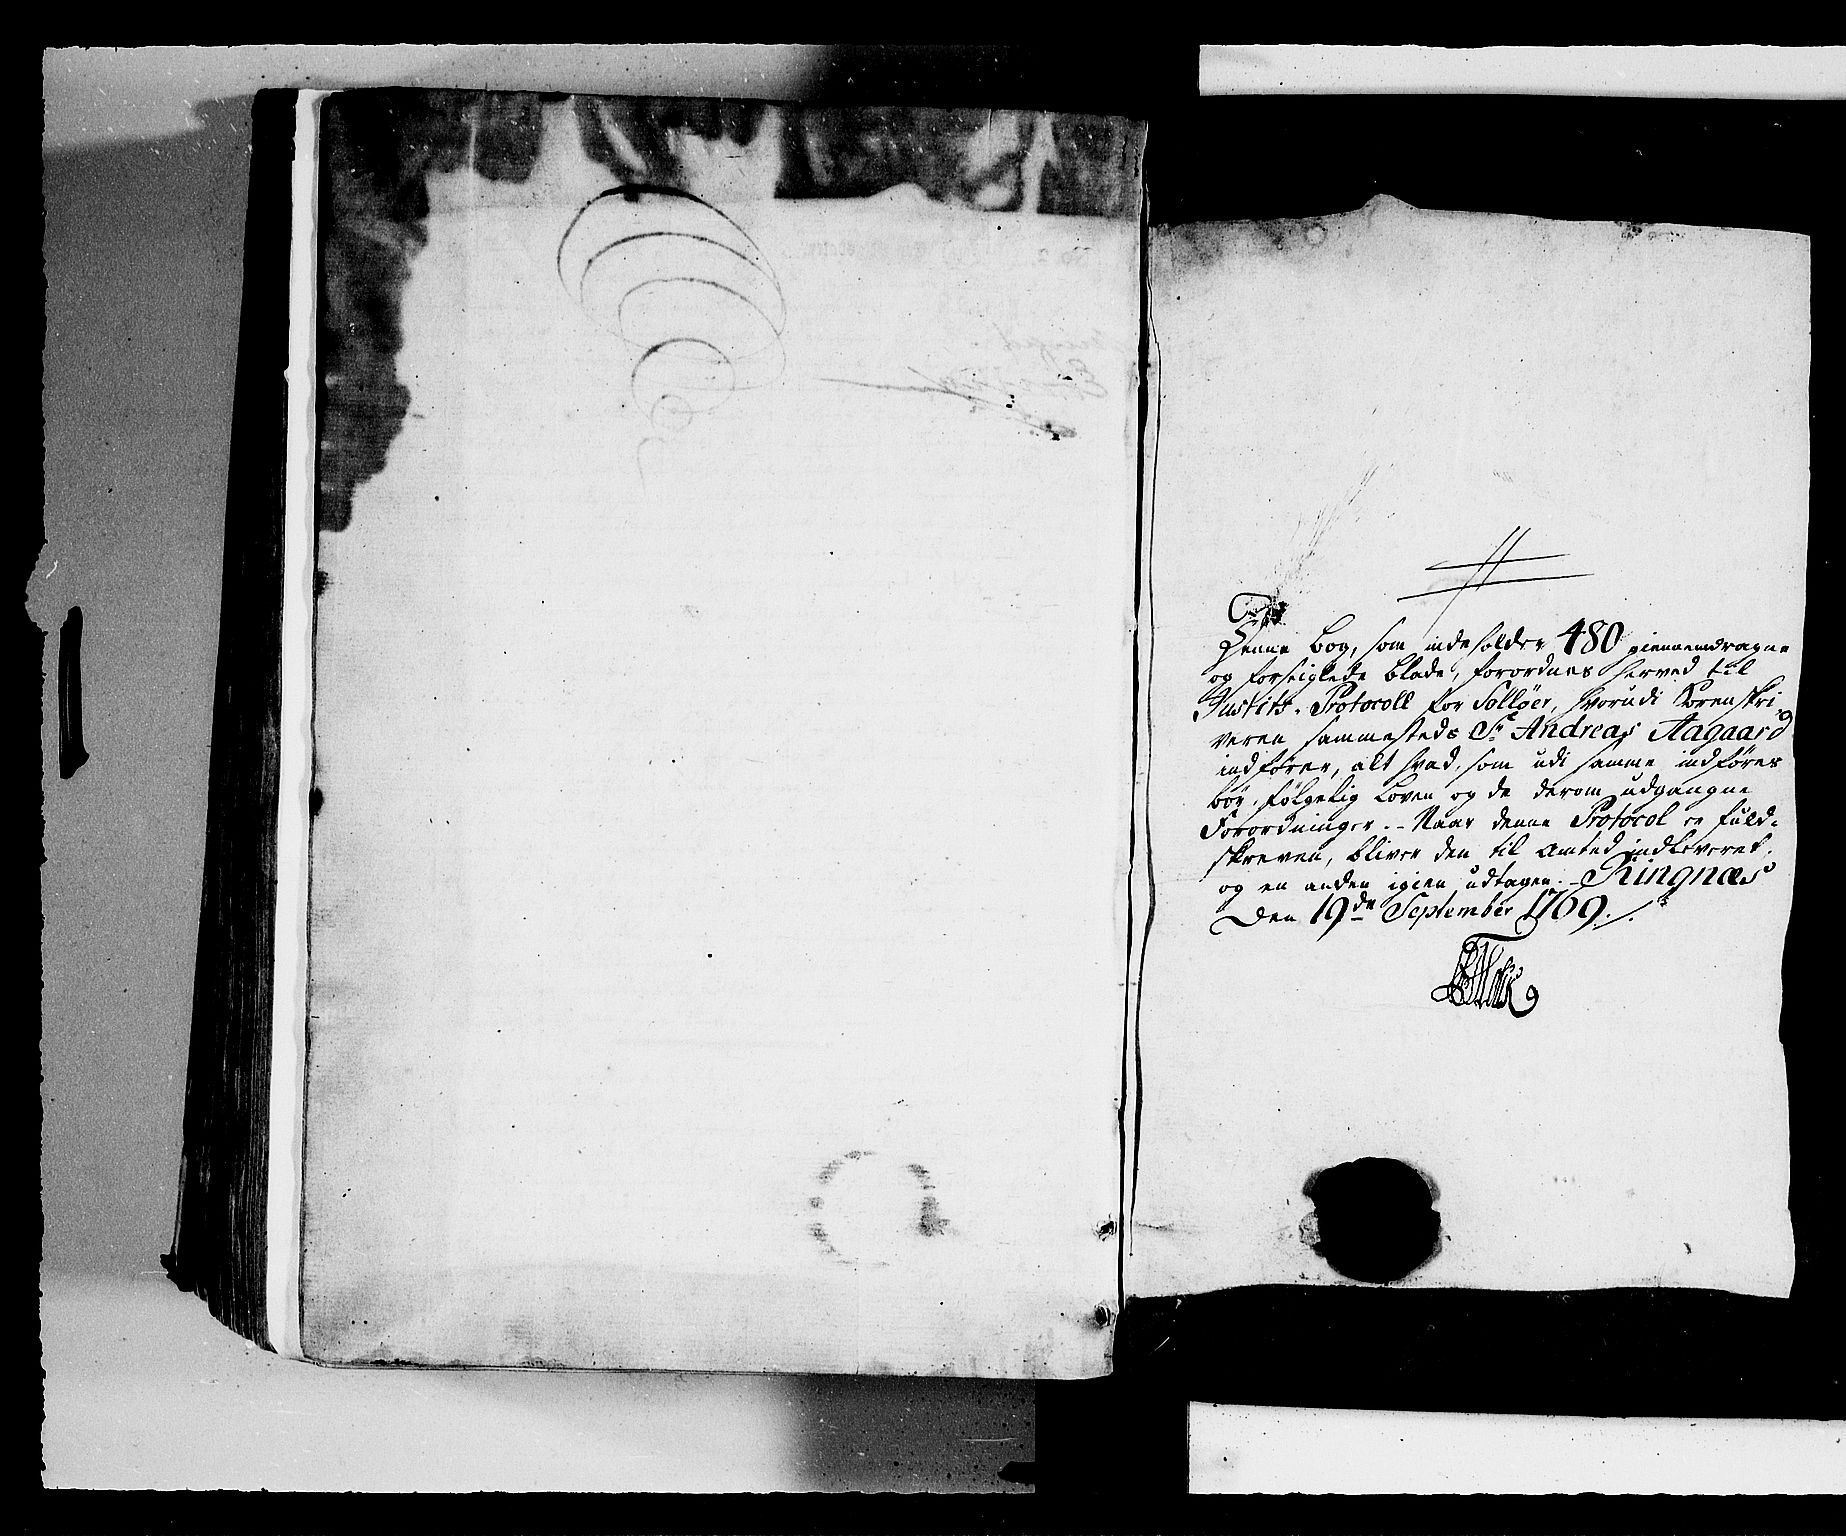 Denne Bog, som indeholder 480 giennemdragne
og forseiglede Blade, forordnes herved til
Justits-Protocoll for Solløer, hvorudi Sorenskri-
veren sammesteds Sr Andreas Aagaard
indfører, alt hvad, som udi samme indføres
bør, følgelig Loven og de derom udgangne
Forordninger. - Naar denne Protocol er fuld-
skreven, bliver den til Amtet indleveret,
og en anden igien udtagen. - Ringnæs
Den 19de September 1769.